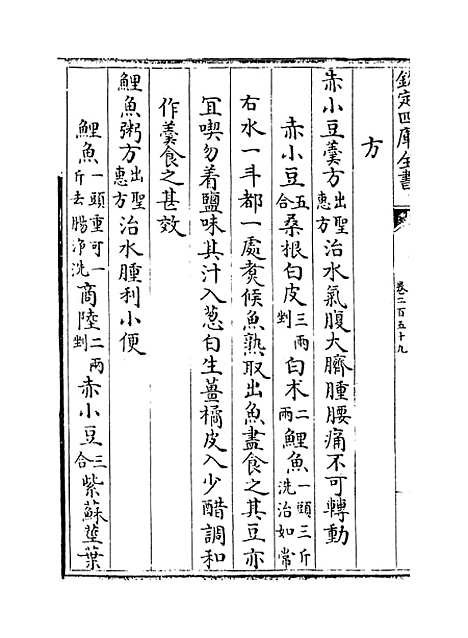 欽定四庫全書
卷三百五十九
方
赤小豆羹方出聖惠方治水氣腹大臍腫腰痛不可轉動
赤小豆五合桑根白皮三兩剉白朮二兩鯉魚一頭三斤洗治如常
右水一斗都一處煑候魚熟取出魚盡食之其豆亦
宜喫勿着鹽味其汁入葱白生薑橘皮入少醋調和
作羹食之甚效
鯉魚粥方出聖惠方治水腫利小便
鯉魚一頭重可一斤去腸淨洗商陸二兩剉赤小豆三合紫蘇莖葉